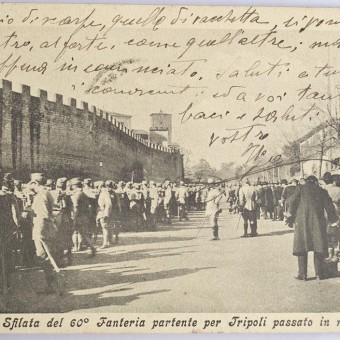 io di scarpe, quello di racchetta, si pom
tro, al forte, come quell'altre; ma
appena incominciato, saluti a tu
i conoscenti; ed a voi tan
baci e saluti
vostro
Sfilata del 60° Fanteria partente per Tripoli passato in r